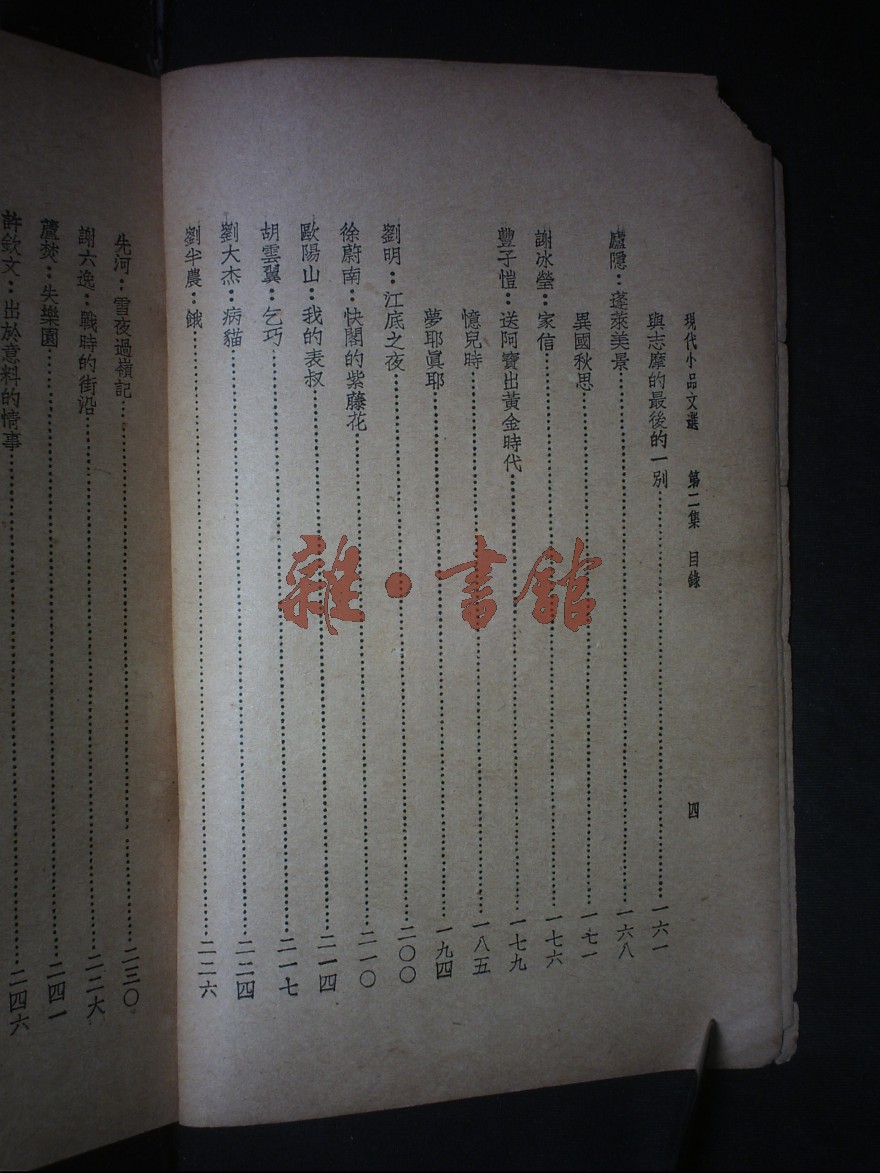 現代小品文選 第二集 目錄 四
與志摩的最後的一別……一六一
廬隱：蓬萊美景……一六八
異國秋思……一七一
謝冰瑩：家信……一七六
豐子愷：送阿寶出黃金時代……一七九
憶兒時……一八五
夢耶眞耶……一九四
劉明：江底之夜……二〇〇
徐蔚南：快閣的紫藤花……二一〇
歐陽山：我的表叔……二一四
胡雲翼：乞巧……二一七
劉大杰：病貓……二二四
劉半農：餓……二二六
先河：雪夜過嶺記……二三〇
謝六逸：戰時的街沿……二二大
蘆焚：失樂園……二四一
許欽文：出於意料的情事……二四六
雜·書館